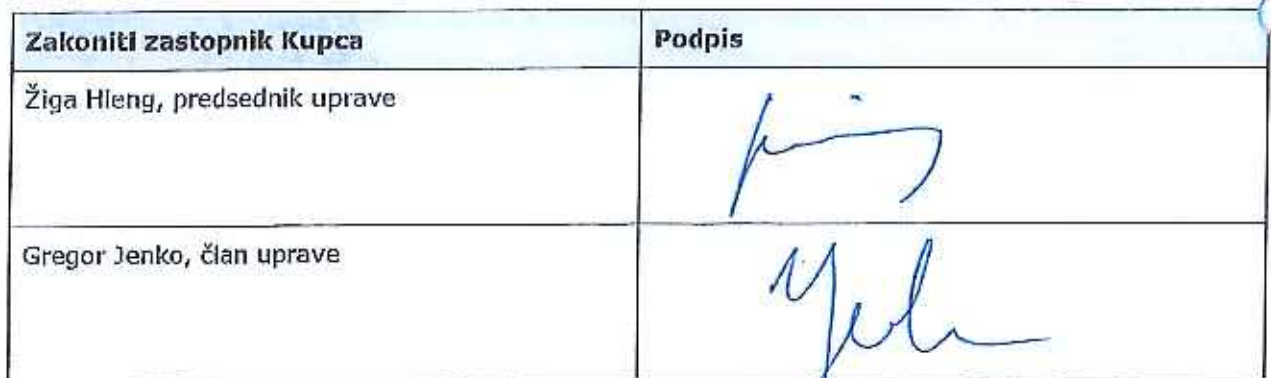 Zakoniti zastopnik Kupca
Podpis
Žiga Hieng, predsednik uprave
Gregor Jenko, član uprave